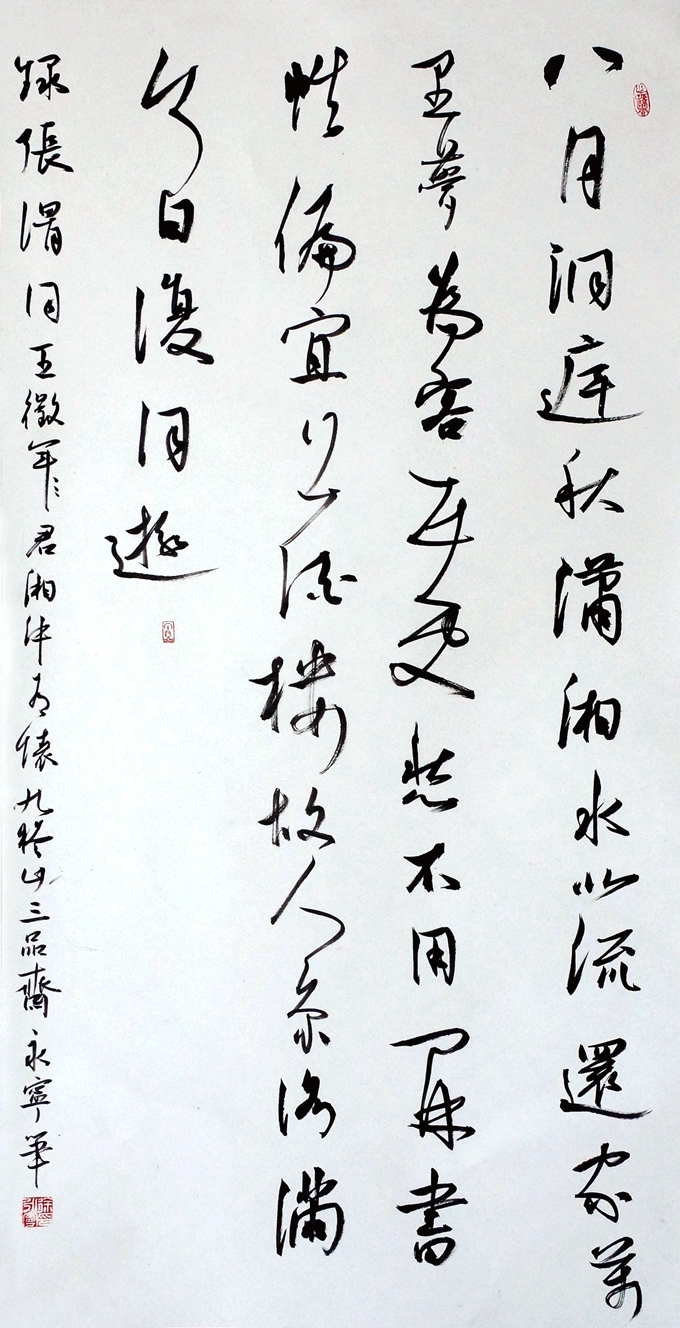 八月洞庭秋瀟湘水北流還家萬
里夢為客五更愁不用開書
帙偏宜上酒樓故人京洛滿
何日復同遊
錄張謂同王徵軍君湘中有懷九山三品齋永寧筆